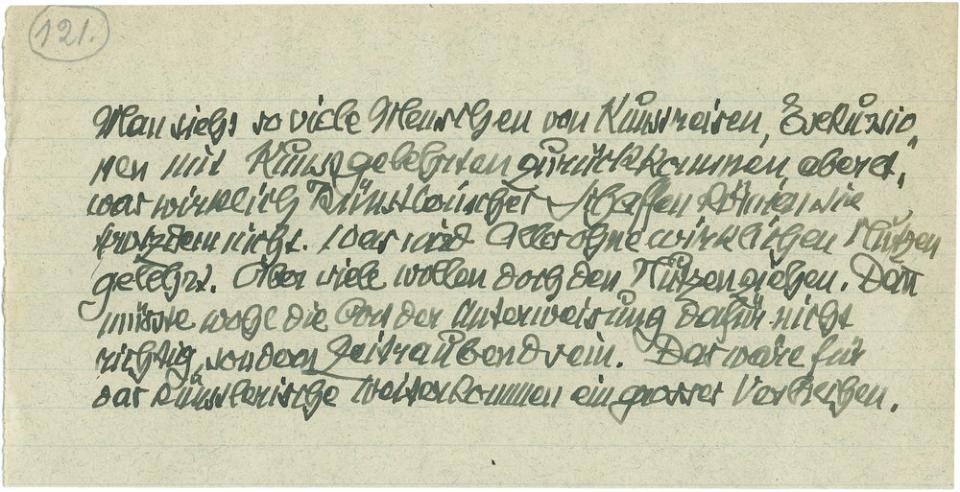 121.
Man sieht so viele Menschen von Kunstreisen, Exkursio
nen mit Kunstgelehrten zurückkommen, aber
was wirklich Künstlerischer Schaffen können sie
trotzdem nicht. Das wird Alles ohne wirklichen Nutzen
gelehrt. Aber viele wollen doch den Nutzen ziehen. Dan
müsste wohl die Art der Unterweisung dafür nicht
richtig, sondern Zeitraubend sein. Das wäre für
das künstlerische weiterkommen ein grosses Verbrechen.